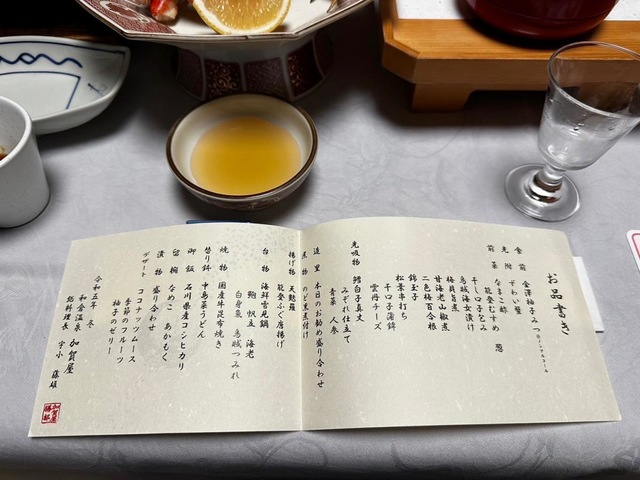 お品書き
食前 金澤柚子みつ ※ノンアルコール
先附 ずわい蟹
なまこ酢
前菜 能登むすめ 葱
干し口子包み
烏賊海女漬け
梅貝旨煮
甘海老山椒煮
二色梅百合根
錦玉子
松葉串打ち
千口子蒲鉾
雲丹チーズ
先吸物 鱈白子真丈
みぞれ仕立て
青菜 人参
造里 本日のお勧め盛り合わせ
煮物 のど黒煮付け
揚げ物 天麩羅
能登ふぐ唐揚げ
台物 海鮮寄せ鍋
鮑 帆立 海老
白身魚 烏賊つみれ
焼物 国産牛昆布焼き
替り鉢 中島菜うどん
御飯 石川県産コシヒカリ
留椀 なめこ あかもく
漬物 盛り合わせ
デザート ココナッツムース
季節のフルーツ
柚子のゼリー
令和五年 冬
和倉温泉 加賀屋
総料理長 宇小 藤雄